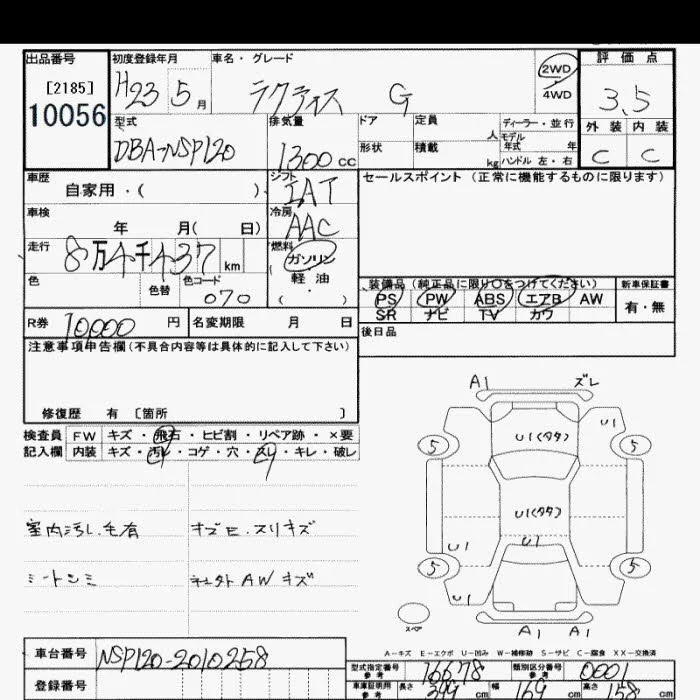 出品番号 初度登録年月 車名・グレード 2WD 評価点
[2185] H23 5月 ラクティス G 4WD 3.5
10056 型式 排気量 ドア 定員 人 ディーラー・並行 外装 内装
モデル年式 年
DBA-NSP120 1300cc 形状 積載 kg ハンドル 左・右 C C
車歴 シフト セールスポイント(正常に機能するものに限ります)
自家用・( ) IAT
車検 冷房
年 月( 日) AAC
走行 8万4千437km 燃料 ガソリン
軽油
( )
色 色替 色コード 070
装備品(純正品に限り○をつけてください) 新車保証書
PS PW ABS エアB AW 有・無
SR ナビ TV カワ
R券 10,000円 名変期限 月 日 後日品
注意事項申告欄(不具合内容等は具体的に記入して下さい)
修復歴 有 〔箇所 〕
検査員 FW キズ・飛石・ヒビ割・リペア跡・×要
記入欄 内装 キズ・汚レ・コゲ・穴・スレ・キレ・破レ
室内汚し.毛有
シートシミ
A1 ズレ
U1
5 U1(タタ) 5
U1(タタ)
U1 U1
5 5
U1
スペア
A1 A1
A-キズ E-エクボ U-凹み W-補修跡 S-サビ C-腐食 XX-交換済
車台番号 NSP120-2010258
登録番号
型式指定番号 参考 16678 類別区分番号 参考 0001
車庫証明用 参考 長さ 399cm 幅 169cm 高さ 158cm